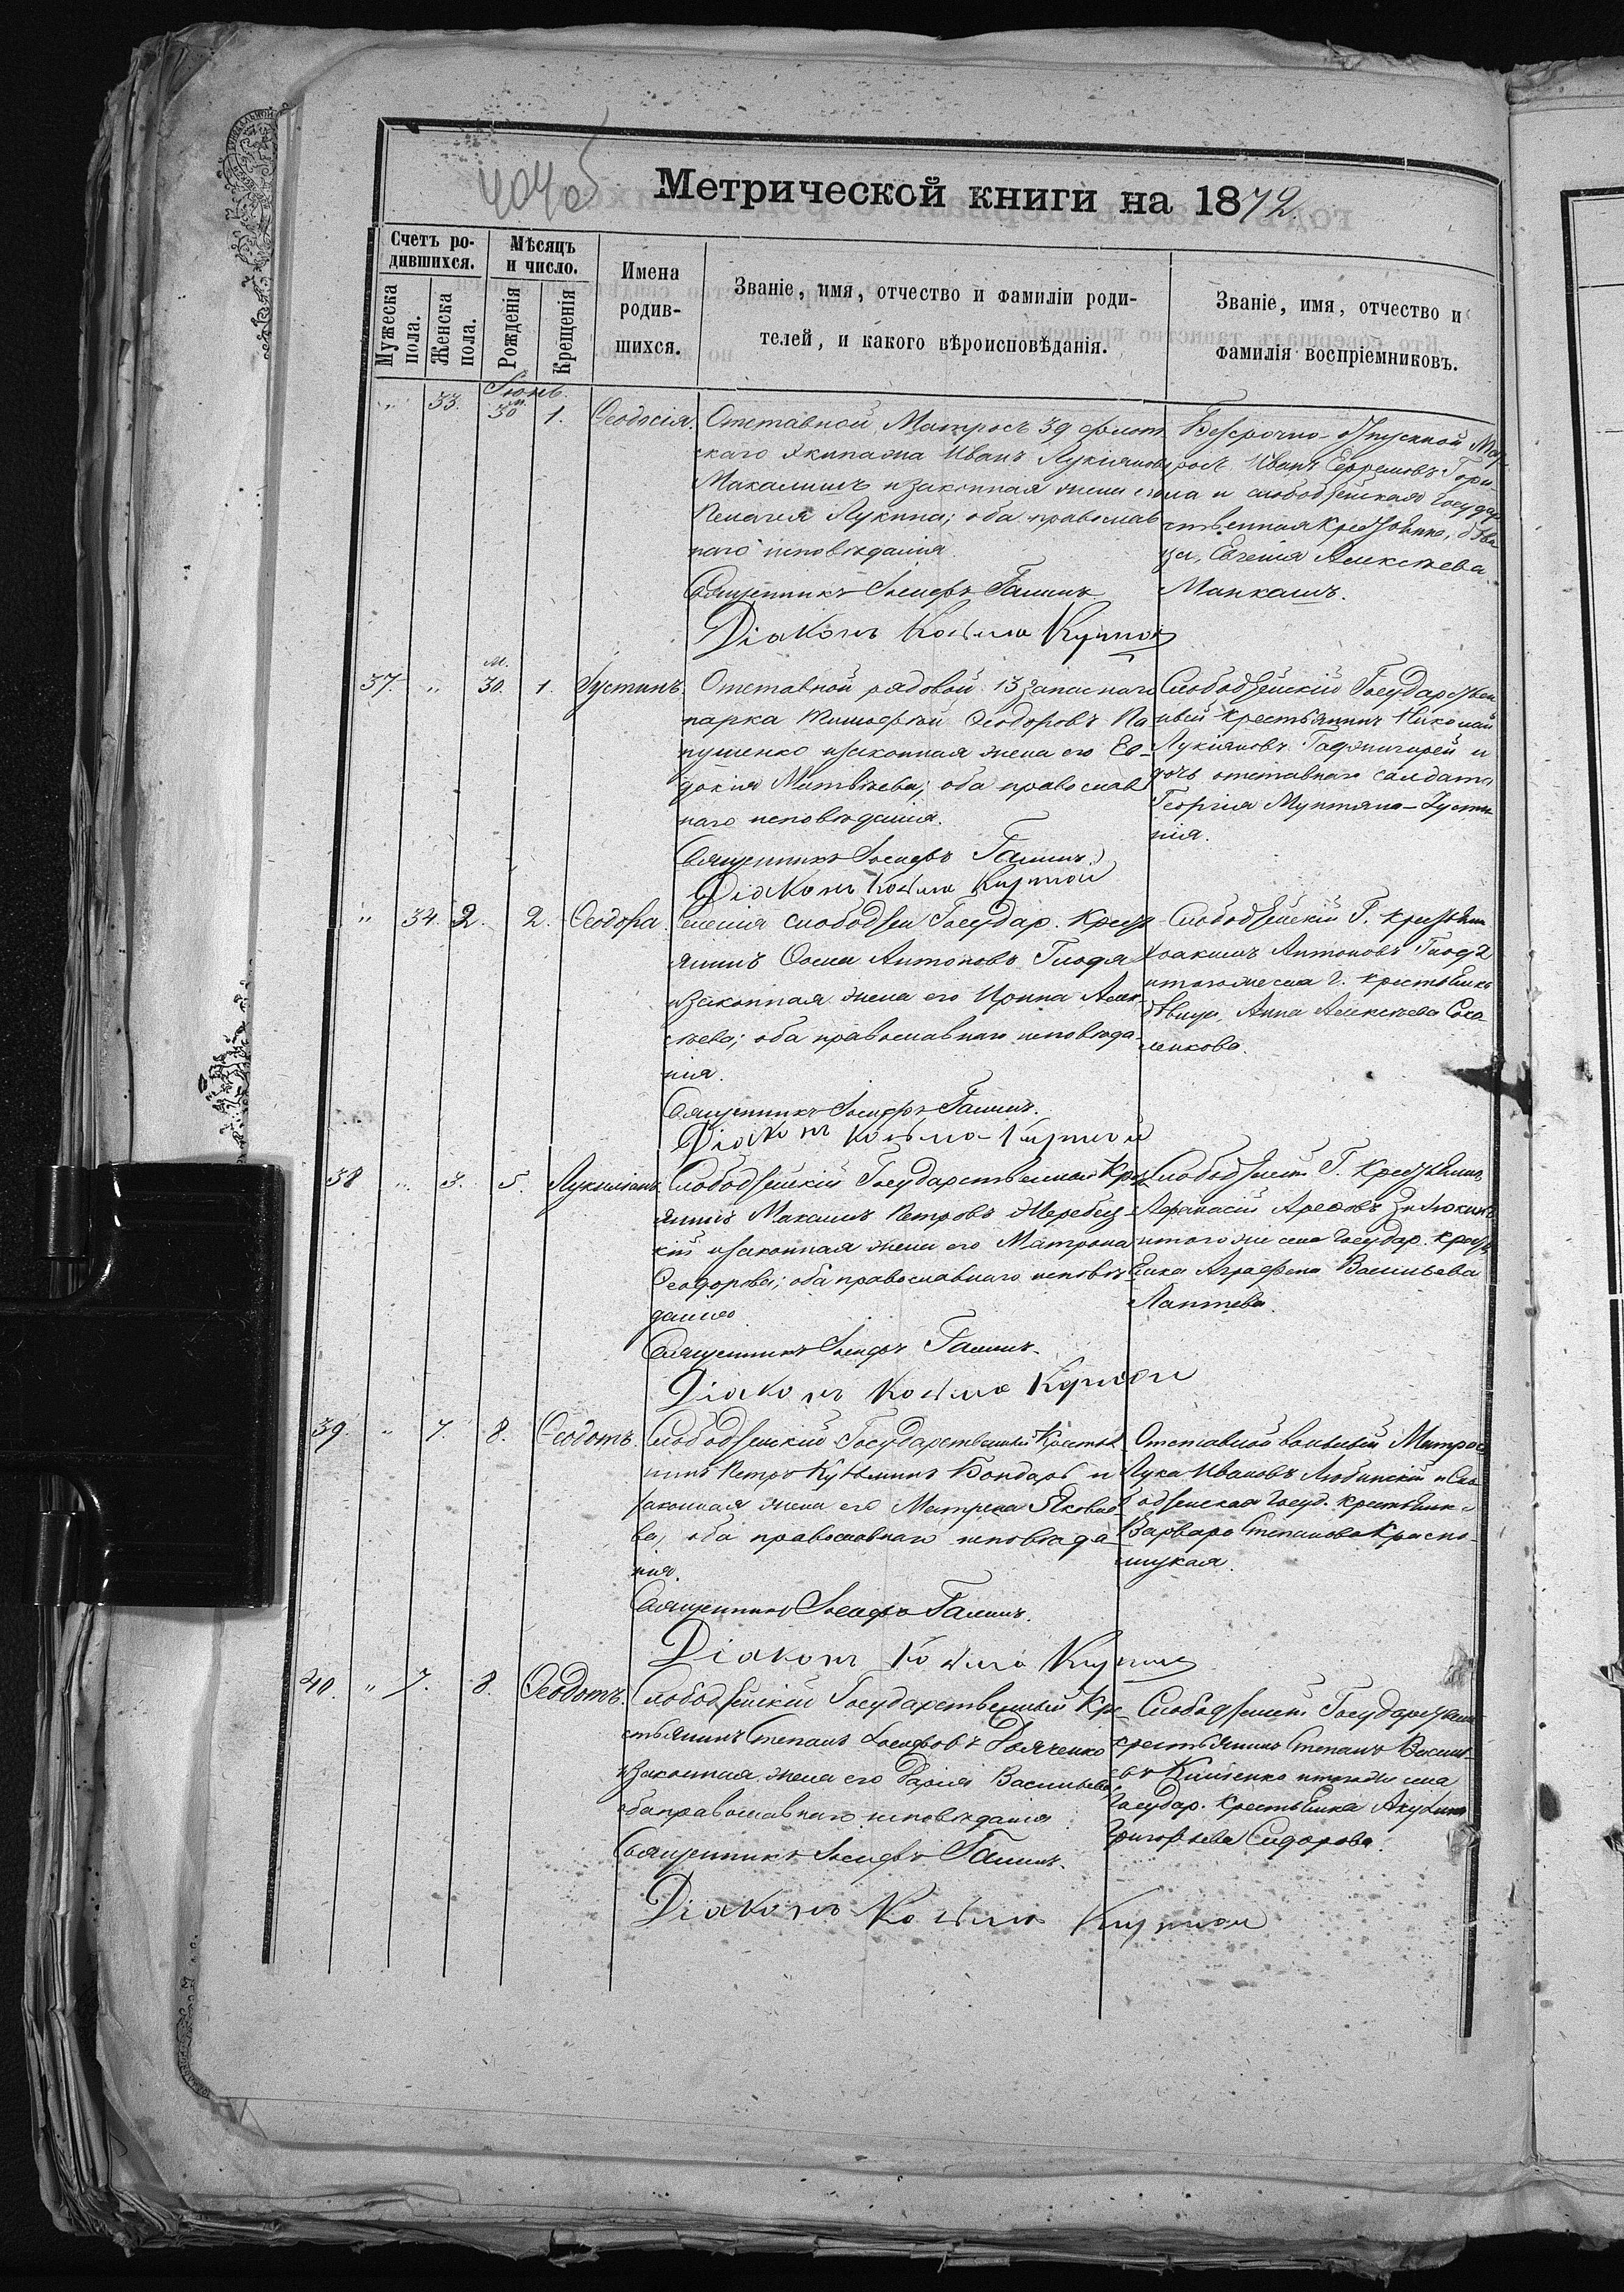 404об
Метрической книги на 1872.
Счетъ ро-
дившихся.
Мѣсяцъ
и число.
Мужеска
пола.
Женска
пола.
Рожденія
Крещенія
Имена
родив-
шихся.
Званіе, имя, отчество и фамиліи роди-
телей, и какого вѣроисповѣданія.
Званіе, имя, отчество и
фамилія воспріемниковъ.
Іюнь.
" 33. м. 30 1. Ѳеодосія.
Отставной Матросъ 39 флот
скаго Экипажа Иванъ Лукіяновъ
и законная жена его
Пелагея Лукина; оба православ
наго исповѣданія
Священникъ Іосифъ
Діаконъ Козьма
Безсрочно-отпускной Мат
росъ Иванъ Ефремовъ
и слободзейская Государ
ственная крестьянка, дѣви
ца, Евгенія Алексѣева
37. " м. 30. 1. Іустинъ.
Отставной рядовой 13 запаснаго
парка Тимофей Ѳеодоровъ Па
пушенко и законная жена его Ев-
докія Матвѣева; оба православ
наго исповѣданія.
Священникъ Іосифъ
Діаконъ Козьма
Слободзейскій Государствен
ный крестьянинъ Николай
Лукіяновъ и
дочь отставнаго салдата
Георгія Мунтяна- Іусти
нія.
" 34. 2. 2. Ѳеодора.
Селенія Слободзеи Государ. Крест
янинъ Ѳома Антоновъ
и законная жена его Ирина Алек
сѣева; оба православнаго исповѣда-
нія.
Священникъ Іосифъ
Діаконъ Козьма
Слободзейскій Г. крестьян
Іоакимъ Антоновъ
и тогоже села Г. крестьянка
дѣвица, Анна Алексѣева
38 " 3. 5. Лукилліанъ
Слободзейскій Государственный Кре
янинъ Максимъ Петровъ Жеребец
кій и законная жена его Матрона
Ѳеодорова; оба православнаго исповѣ
данія
Священникъ Іосифъ
Діаконъ Козьма
Слободзейскій Г. Крестьянинъ
Афанасій
и тогоже села Государ. крест
янка Аграфена Васильева
Лаптева.
39. " 7. 8. Ѳеодотъ.
Слободзейскій Государственный Крестья
нинъ Петръ Кузьминъ Бондарь и
законная жена его Матрена Яковле
ва, оба православнаго исповѣда
нія.
Священникъ Іосифъ
Діаконъ Козьма
Отставной вольный Матрос
Лука Ивановъ Любинскій и Сло
бодзейская Госуд. крестьянка
Варвара Степанова Красно-
40. " 7. 8. Ѳеодотъ.
Слободзейскій Государственный Кре
стьянинъ Степанъ Іосифовъ
и законная жена его Дарія Васильева,
оба православнаго исповѣданія
Священникъ Іосифъ
Діаконъ Козьма
Слободзейскій Государствен
крестьянинъ Степанъ Василь
евъ и тогоже села
Государ. крестьянка Акулина
Григорьева Сидорова.